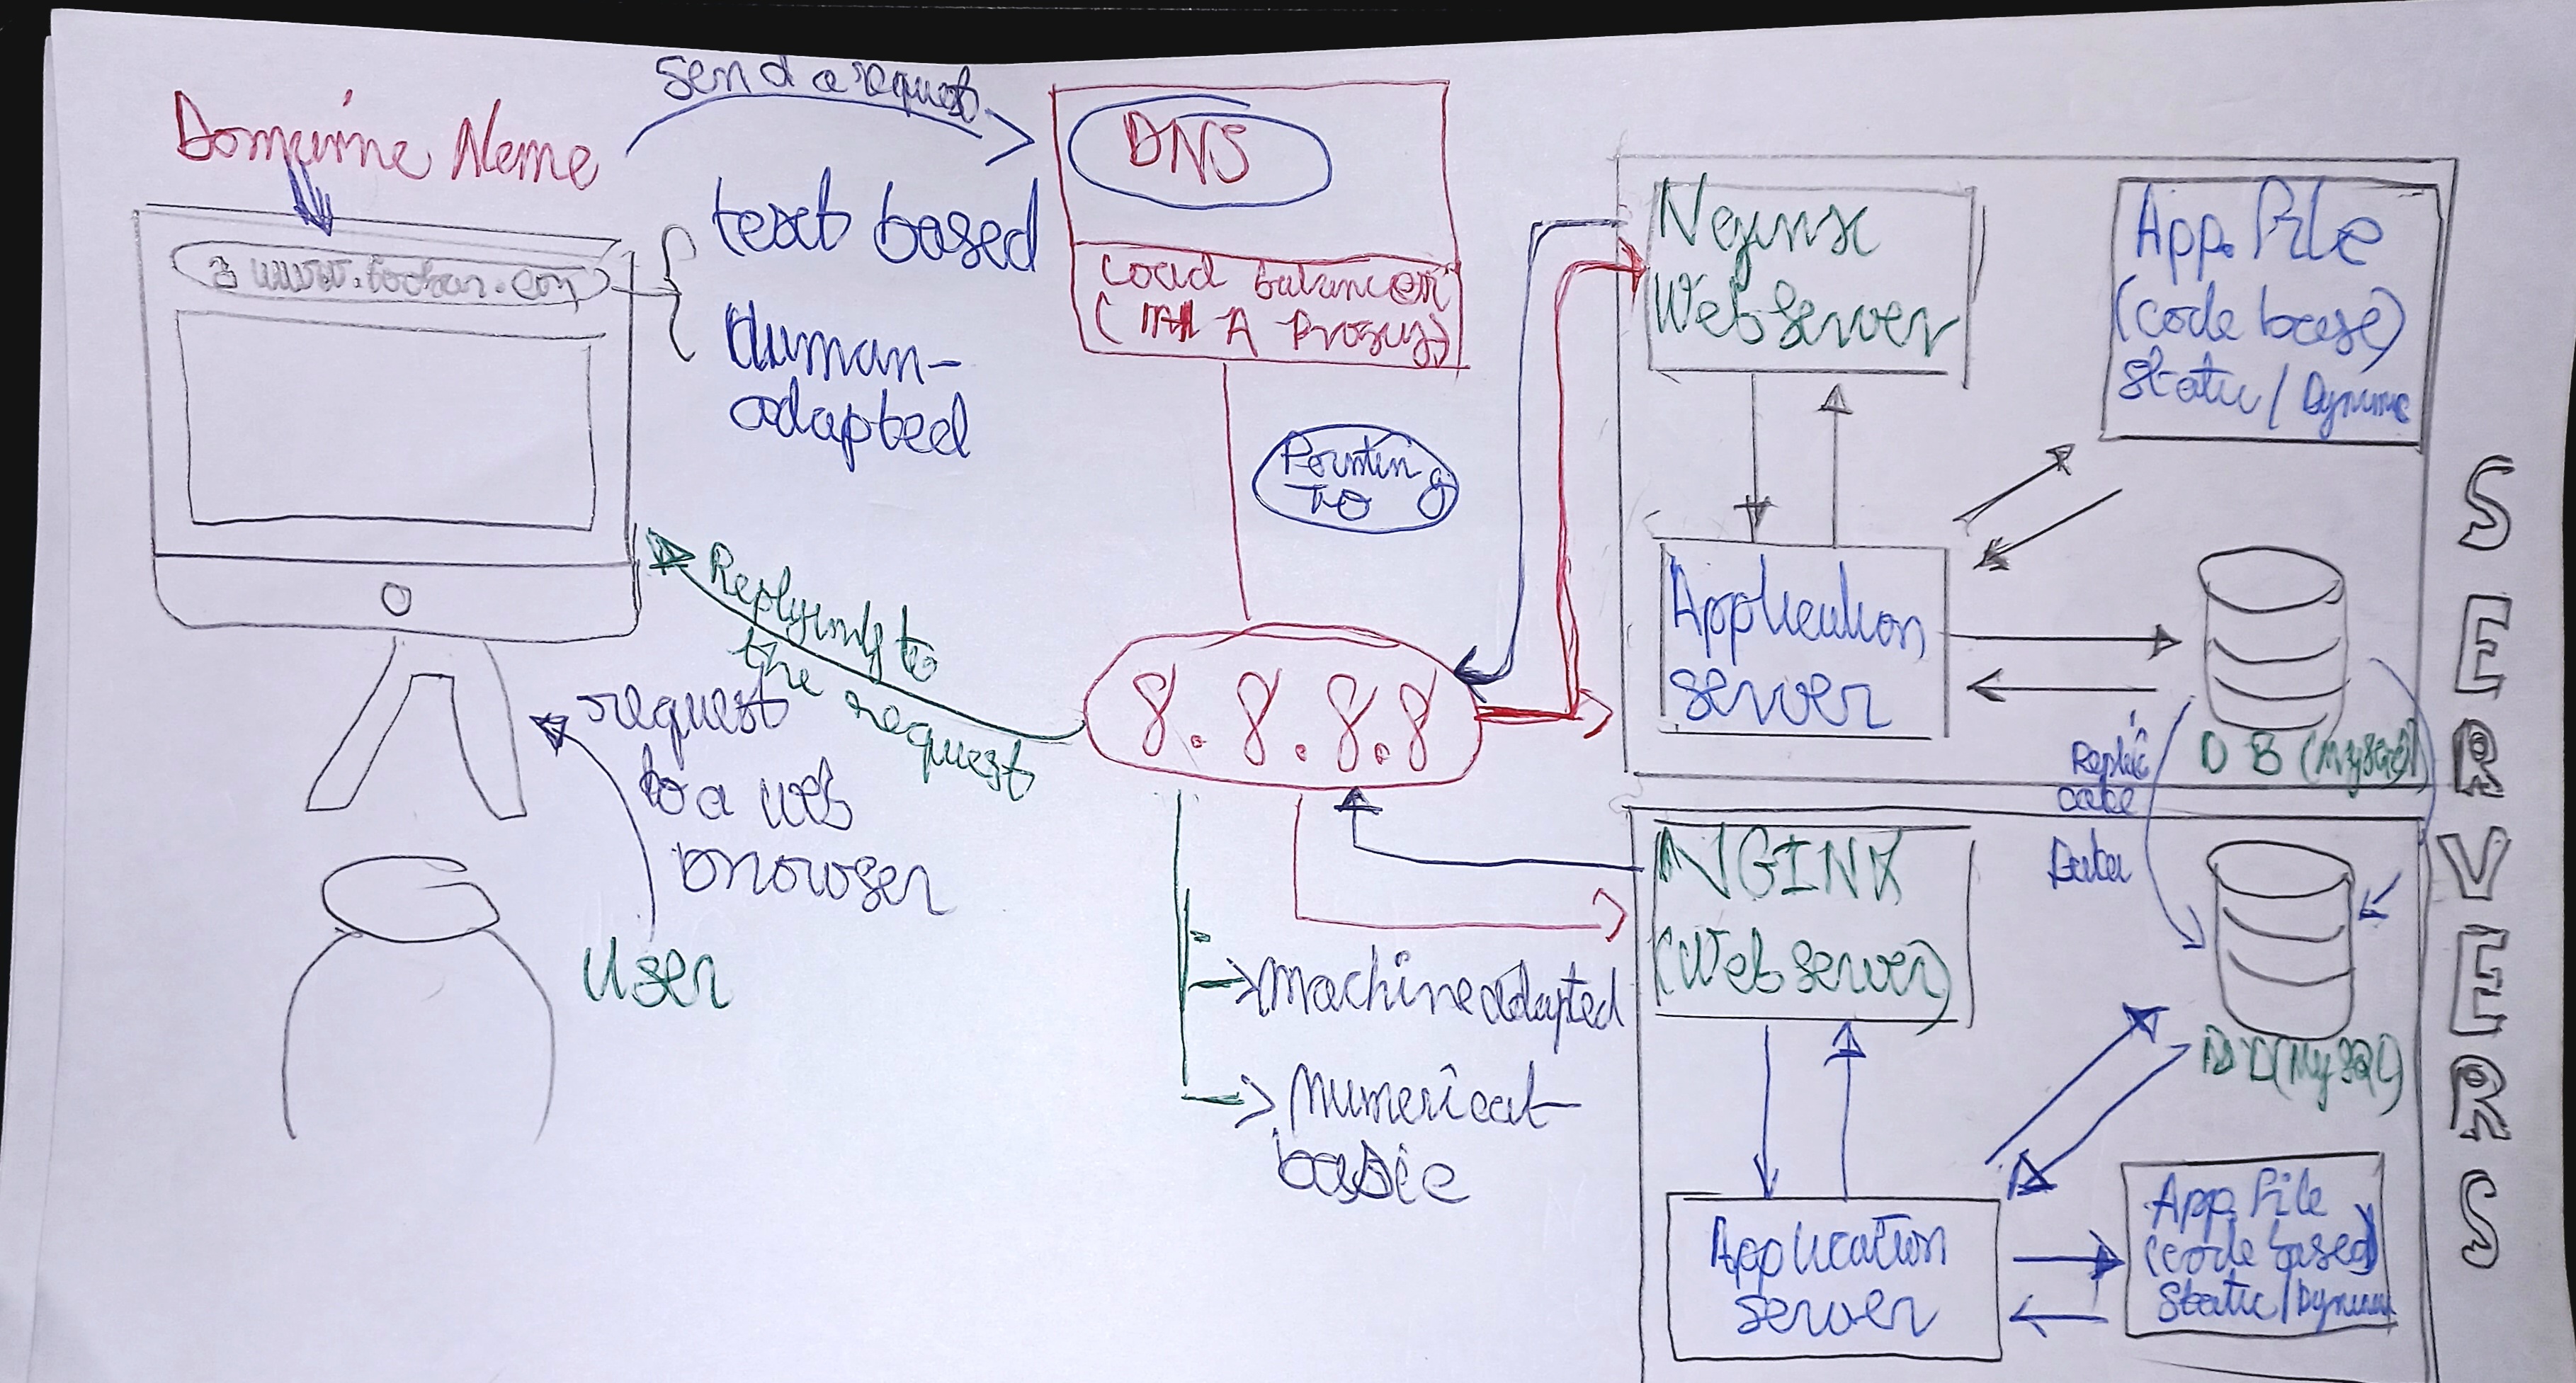 Send a request
Domaine Name
DNS
text based
Human-
adapted
Load balancer
Pointing
TO
Replying to
the request
request
to a web
browser
User
8.8.8.8
machine adapted
numerical-
basic
Nginx
Web server
App. File
(code base)
Static / Dynamic
Application
server
DB (MySQL)
Replic
Data
NGINX
(Web server)
(MySQL)
Application
server
App. File
(code based)
Static / Dynamic
SERVERS